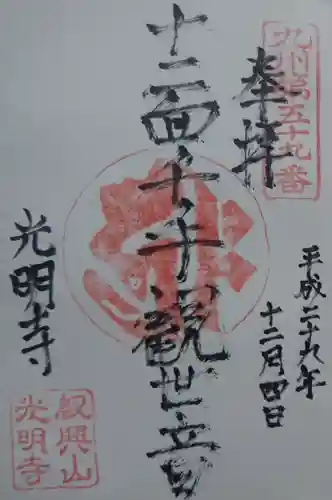 九州第五十九番
奉拝
平成二十九年
十二月四日
十一面千手觀世音
光明寺
光明寺